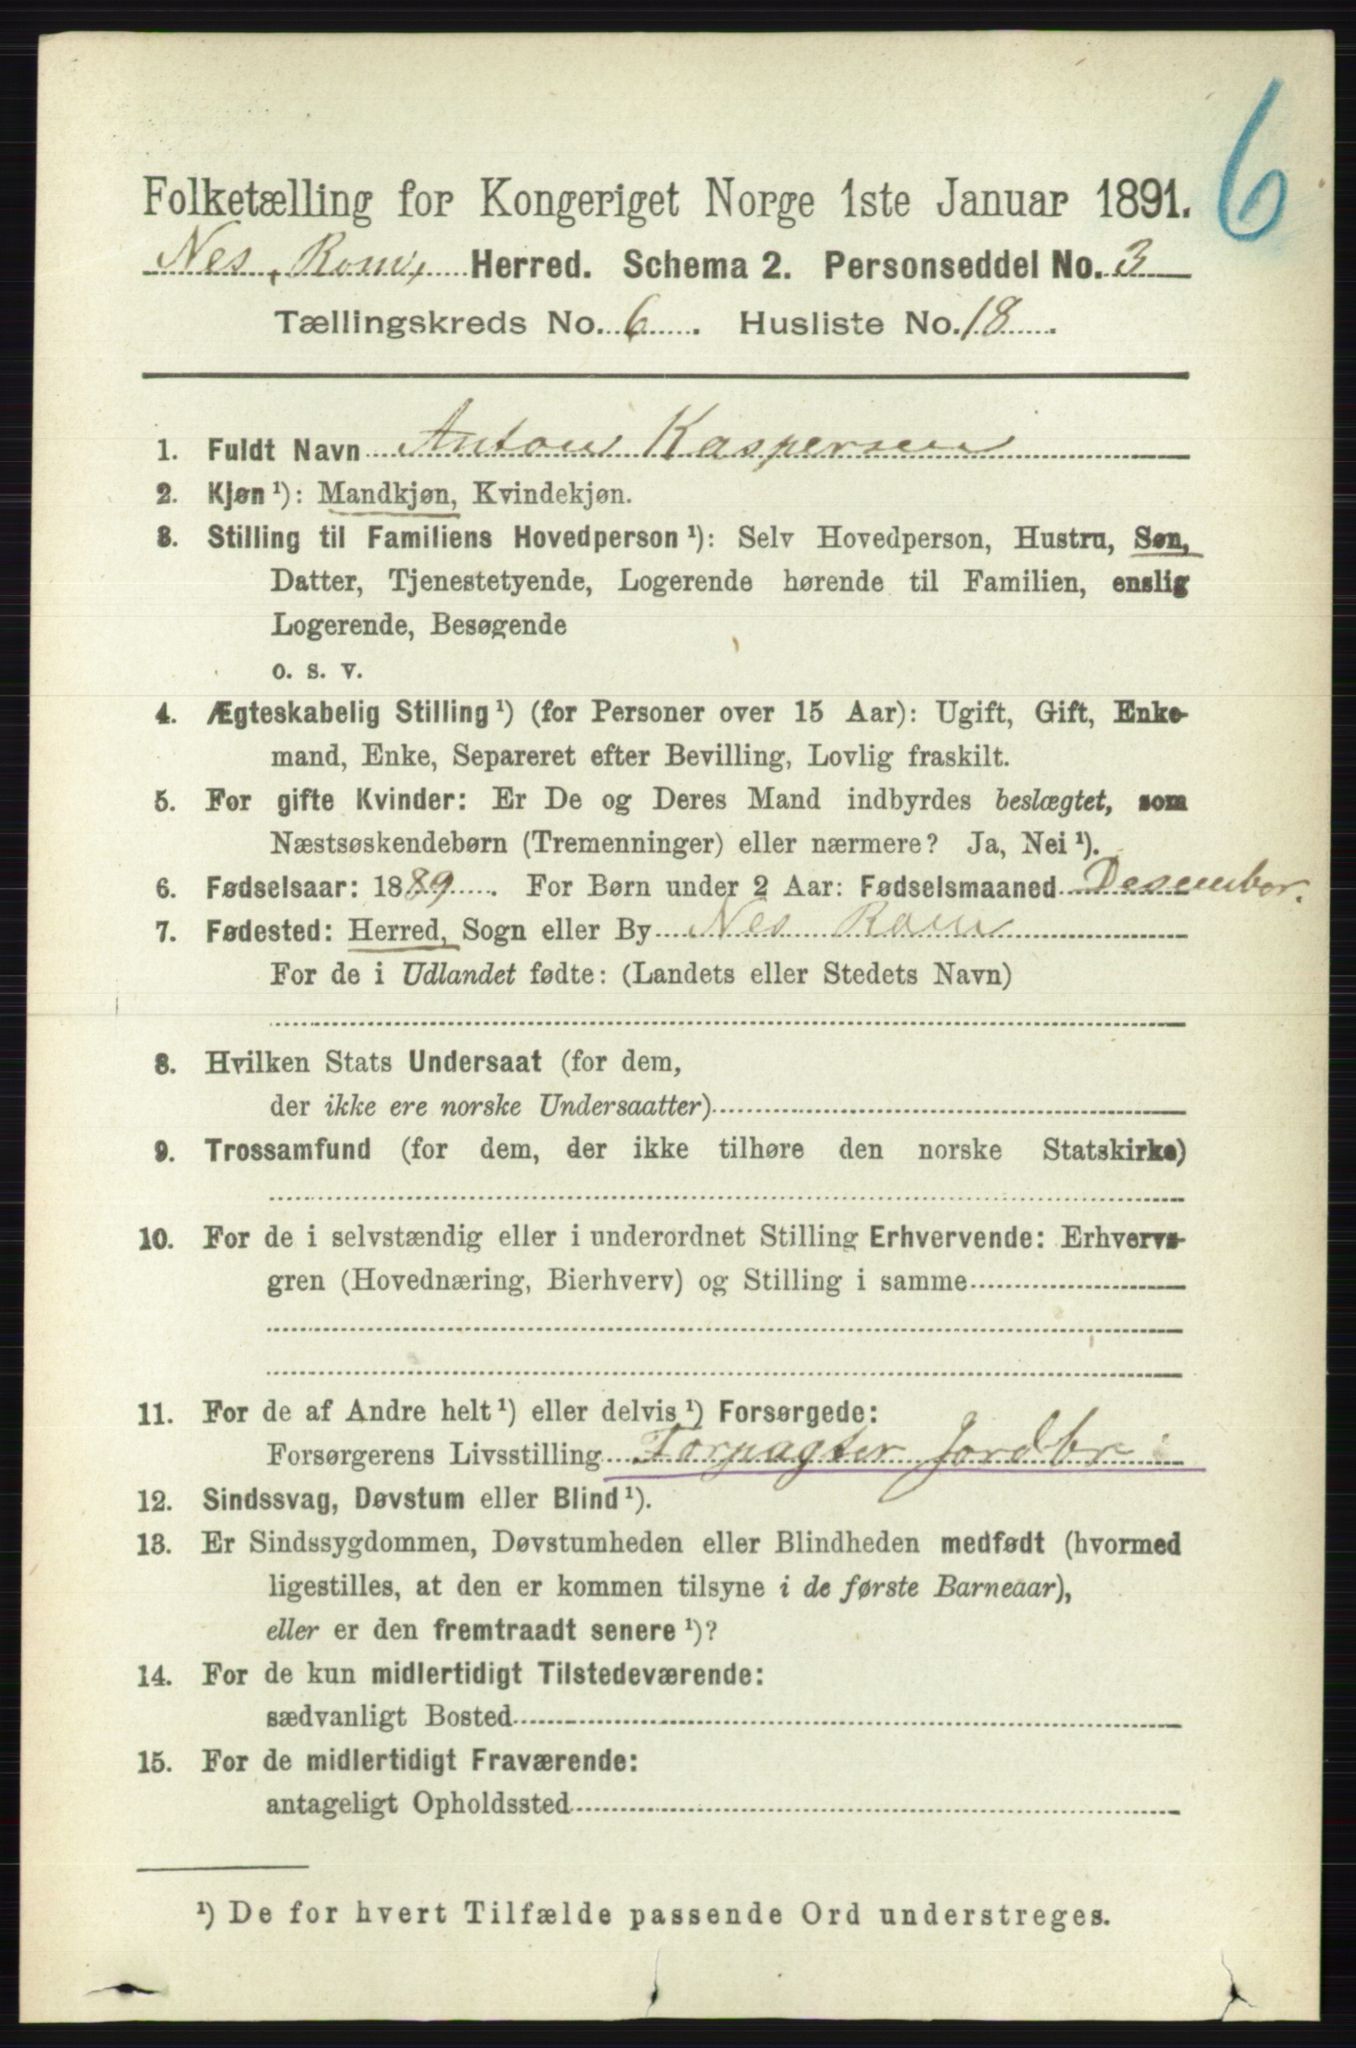 6
Folketælling for Kongeriget Norge 1ste Januar 1891.
Nes, Rom, Herred. Schema 2. Personseddel No. 3
Tællingskreds No. 6. Husliste No. 18.
1. Fuldt Navn Anton Kaspersen
2. Kjøn ¹): Mandkjøn, Kvindekjøn.
3. Stilling til Familiens Hovedperson ¹): Selv Hovedperson, Hustru, Søn,
Datter, Tjenestetyende, Logerende hørende til Familien, enslig
Logerende, Besøgende
o. s. v.
4. Ægteskabelig Stilling ¹) (for Personer over 15 Aar): Ugift, Gift, Enke-
mand, Enke, Separeret efter Bevilling, Lovlig fraskilt.
5. For gifte Kvinder: Er De og Deres Mand indbyrdes beslægtet, som
Næstsøskendebørn (Tremenninger) eller nærmere? Ja, Nei ¹).
6. Fødselsaar: 1889. For Børn under 2 Aar: Fødselsmaaned Desember.
7. Fødested: Herred, Sogn eller By Nes Rom
For de i Udlandet fødte: (Landets eller Stedets Navn)
8. Hvilken Stats Undersaat (for dem,
der ikke ere norske Undersaatter)
9. Trossamfund (for dem, der ikke tilhøre den norske Statskirke)
10. For de i selvstændig eller i underordnet Stilling Erhvervende: Erhvervs-
gren (Hovednæring, Bierhverv) og Stilling i samme
11. For de af Andre helt ¹) eller delvis ¹) Forsørgede:
Forsørgerens Livsstilling Forpagter Jordbr
12. Sindssvag, Døvstum eller Blind ¹).
13. Er Sindssygdommen, Døvstumheden eller Blindheden medfødt (hvormed
ligestilles, at den er kommen tilsyne i de første Barneaar),
eller er den fremtraadt senere ¹)?
14. For de kun midlertidigt Tilstedeværende:
sædvanligt Bosted
15. For de midlertidigt Fraværende:
antageligt Opholdssted
¹) De for hvert Tilfælde passende Ord understreges.